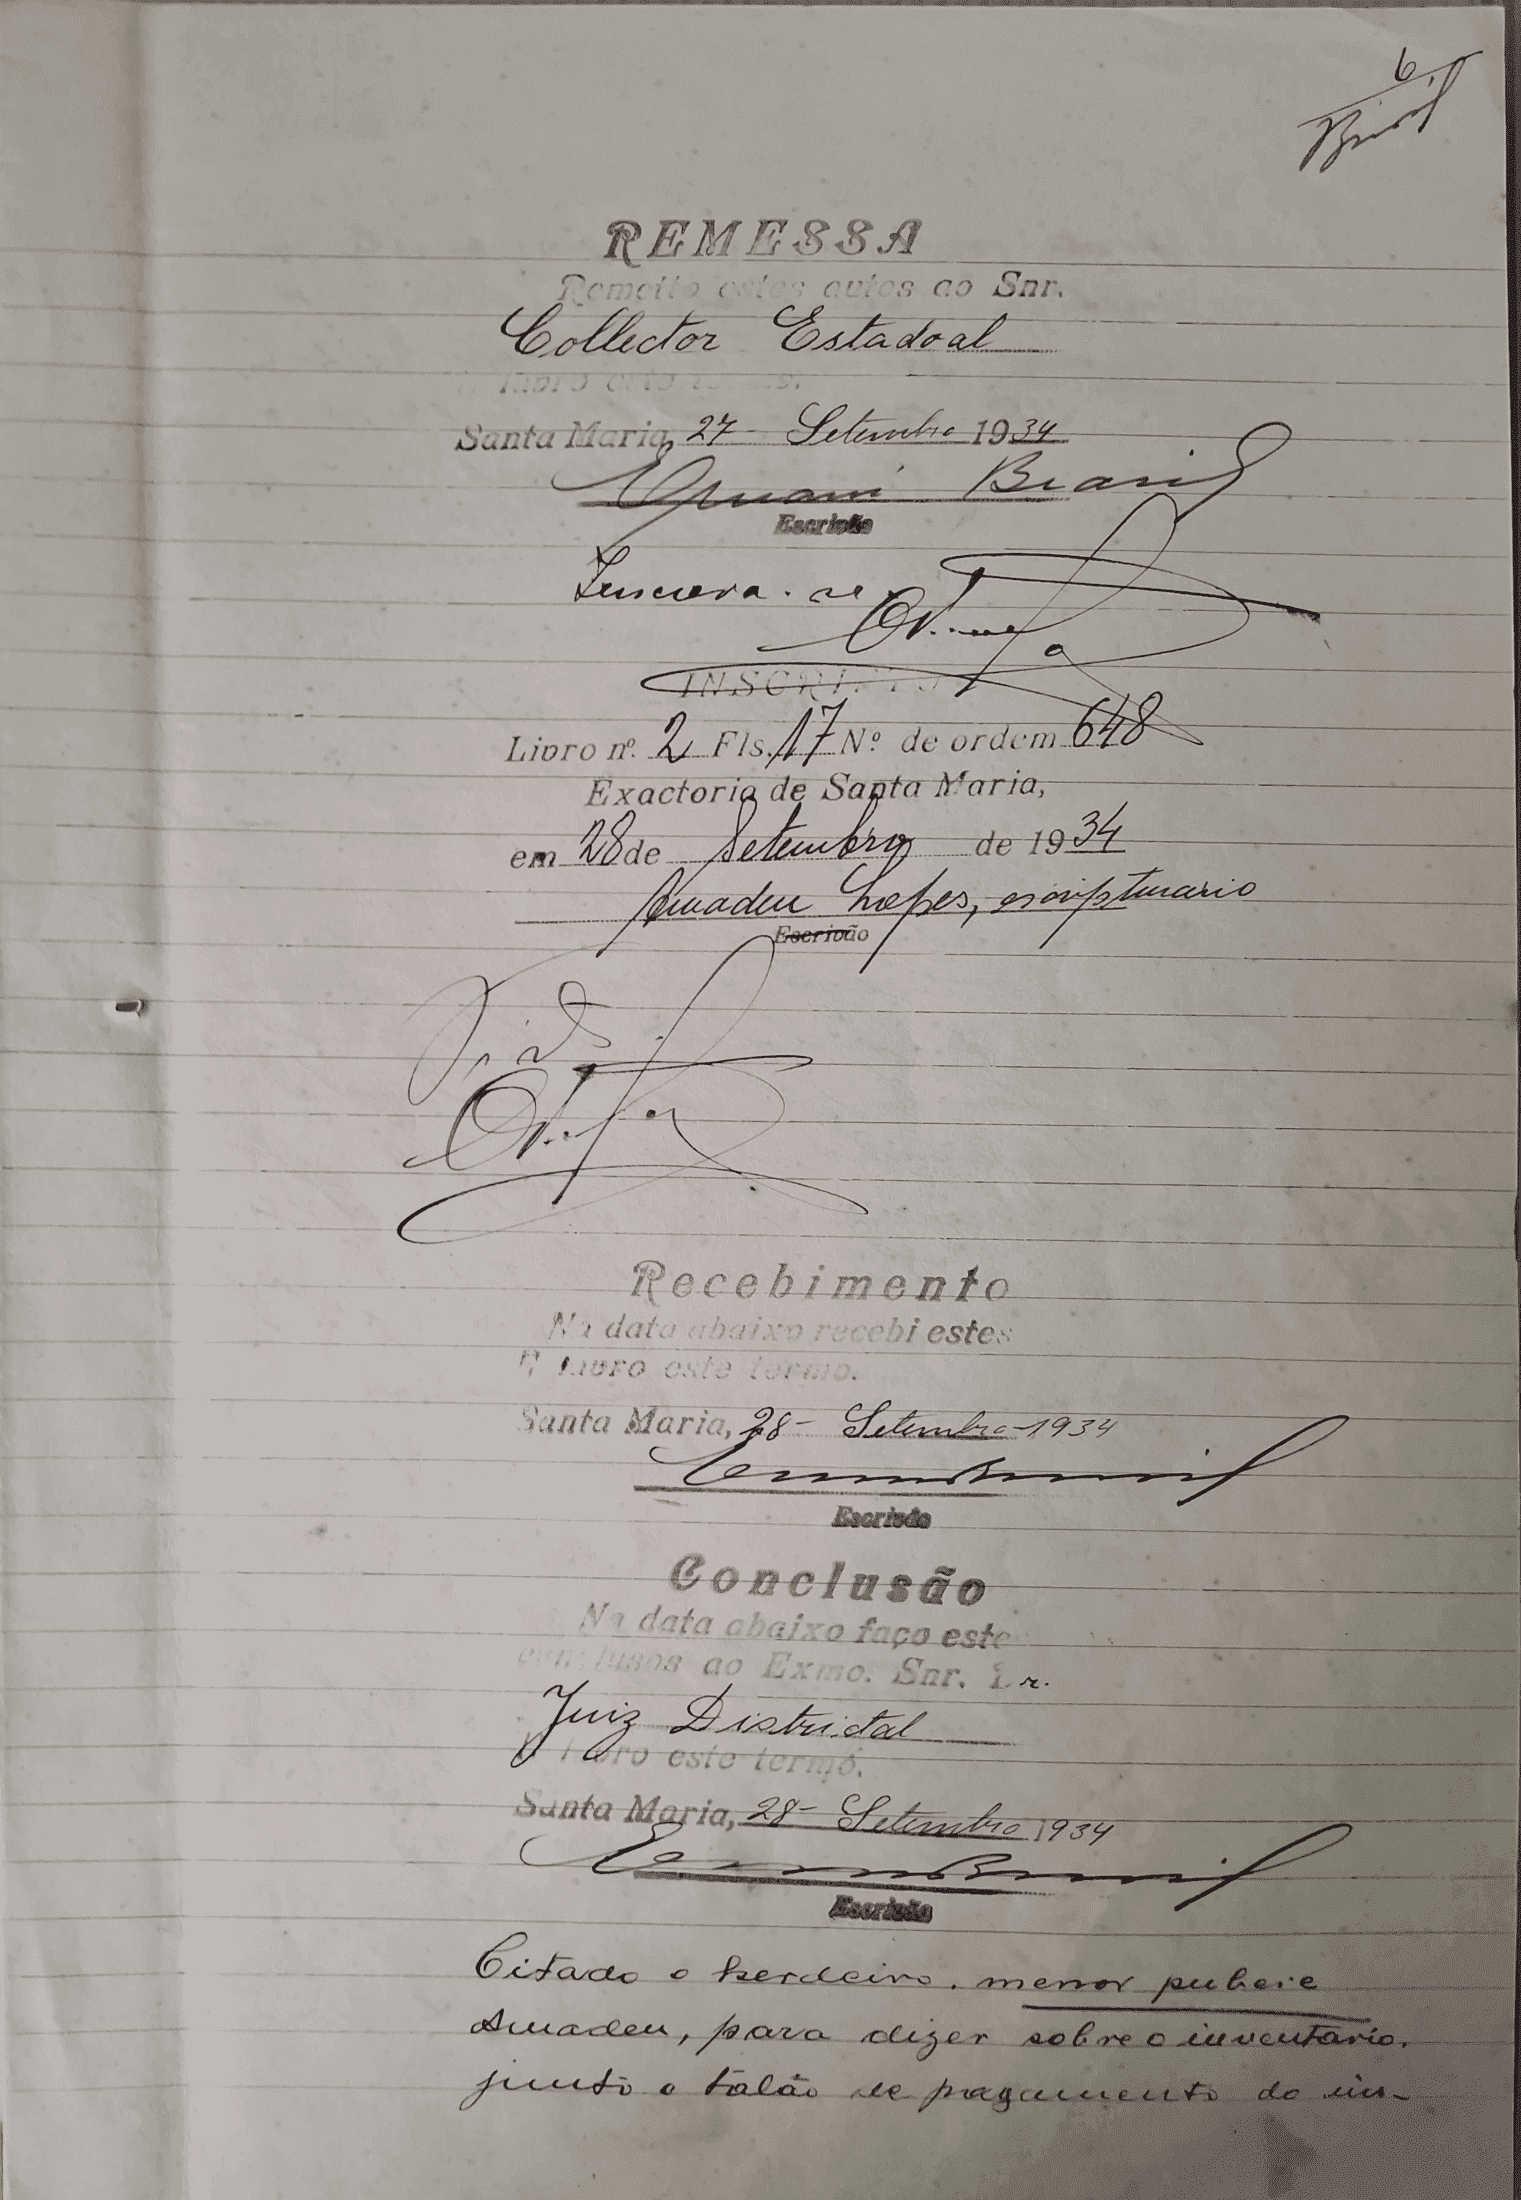 6
Brasil
REMESSA
Remetto estes autos ao Snr.
Collector Estadoal
Santa Maria, 27 - Setembro 1934
Ernani Brasil
Escrivão
Inscreva-se
INSCRIPTO
Livro nº. 2 Fls. 17 Nº de ordem 648
Exactoria de Santa Maria,
em 28 de Setembro de 1934
Amadeu Lopes, escripturario
Escrivão
Recebimento
Na data abaixo recebi estes
E lavro este termo.
Santa Maria, 28 - Setembro - 1934
Escrivão
Conclusão
Na data abaixo faço estes
conclusos ao Exmo. Snr. Dr.
Juiz Districtal
E lavro este termo.
Santa Maria, 28 - Setembro 1934
Escrivão
Citado o herdeiro, menor pubere
Amadeu, para dizer sobre o inventario,
junto o talão de pagamento do im-